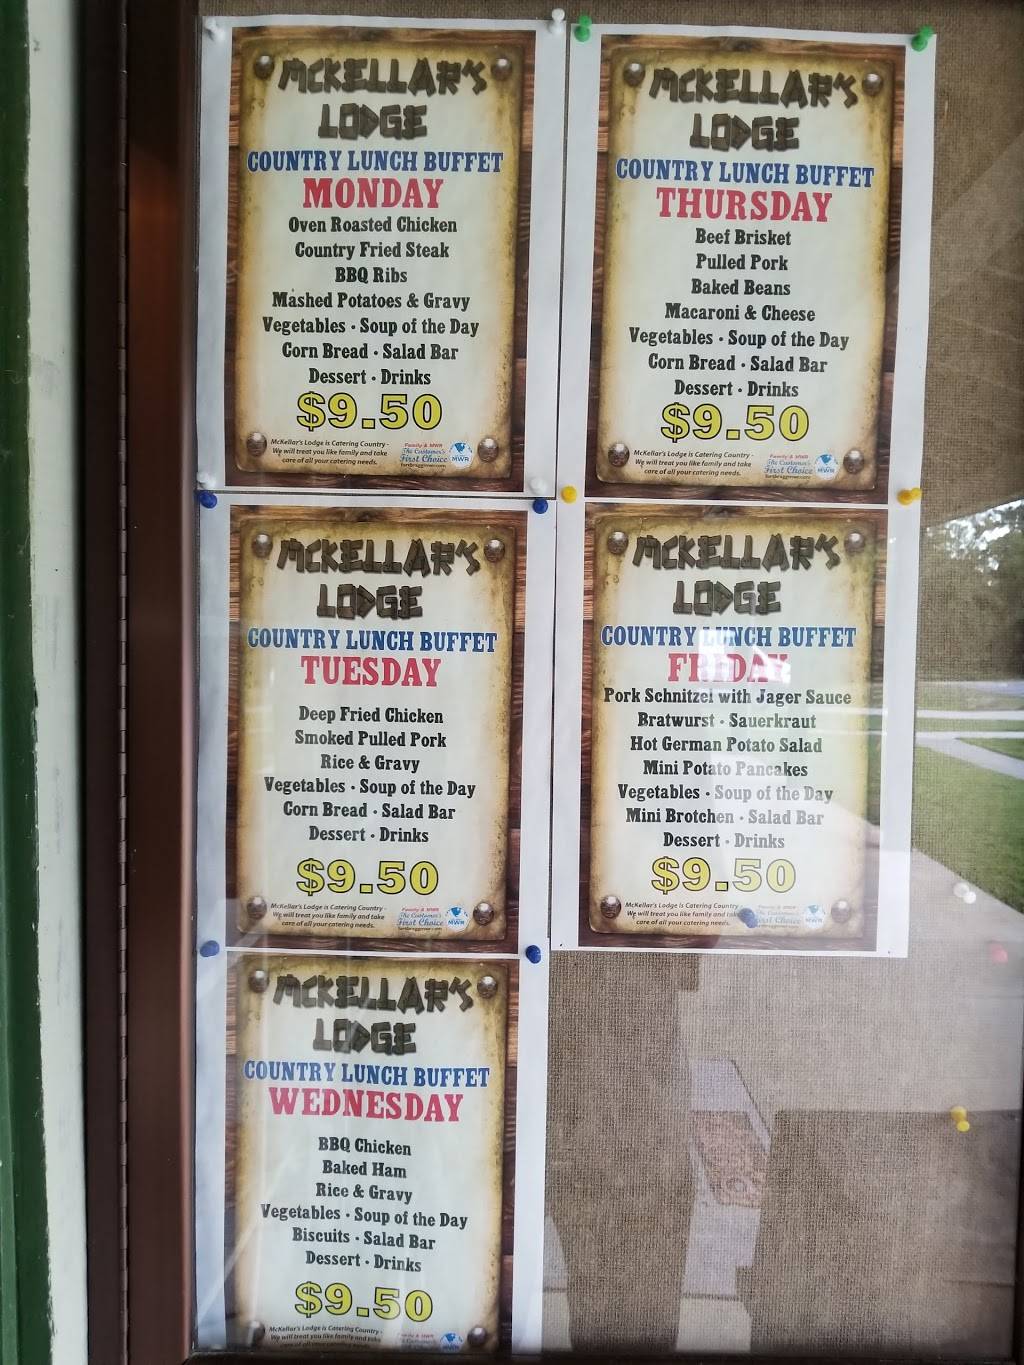 McKELLAR'S
LODGE
COUNTRY LUNCH BUFFET
MONDAY
Oven Roasted Chicken
Country Fried Steak
BBQ Ribs
Mashed Potatoes & Gravy
Vegetables • Soup of the Day
Corn Bread • Salad Bar
Dessert • Drinks
$9.50
McKellar's Lodge is Catering Country -
We will treat you like family and take
care of all your catering needs.
Family & MWR
The Customer's
First Choice
fortbraggmwr.com
MWR
McKELLAR'S
LODGE
COUNTRY LUNCH BUFFET
THURSDAY
Beef Brisket
Pulled Pork
Baked Beans
Macaroni & Cheese
Vegetables • Soup of the Day
Corn Bread • Salad Bar
Dessert • Drinks
$9.50
McKellar's Lodge is Catering Country -
We will treat you like family and take
care of all your catering needs.
Family & MWR
The Customer's
First Choice
fortbraggmwr.com
MWR
McKELLAR'S
LODGE
COUNTRY LUNCH BUFFET
TUESDAY
Deep Fried Chicken
Smoked Pulled Pork
Rice & Gravy
Vegetables • Soup of the Day
Corn Bread • Salad Bar
Dessert • Drinks
$9.50
McKellar's Lodge is Catering Country -
We will treat you like family and take
care of all your catering needs.
Family & MWR
The Customer's
First Choice
fortbraggmwr.com
MWR
McKELLAR'S
LODGE
COUNTRY LUNCH BUFFET
FRIDAY
Pork Schnitzel with Jager Sauce
Bratwurst • Sauerkraut
Hot German Potato Salad
Mini Potato Pancakes
Vegetables • Soup of the Day
Mini Brotchen • Salad Bar
Dessert • Drinks
$9.50
McKellar's Lodge is Catering Country -
We will treat you like family and take
care of all your catering needs.
Family & MWR
The Customer's
First Choice
fortbraggmwr.com
MWR
McKELLAR'S
LODGE
COUNTRY LUNCH BUFFET
WEDNESDAY
BBQ Chicken
Baked Ham
Rice & Gravy
Vegetables • Soup of the Day
Biscuits • Salad Bar
Dessert • Drinks
$9.50
McKellar's Lodge is Catering Country -
We will treat you like family and take
care of all your catering needs.